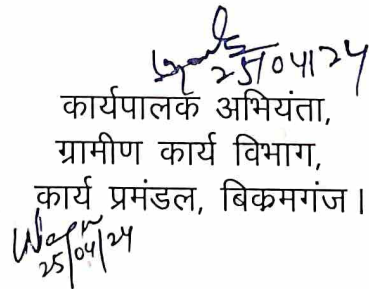 25/04/24
कार्यपालक अभियंता,
ग्रामीण कार्य विभाग,
कार्य प्रमंडल, बिक्रमगंज।
25/04/24